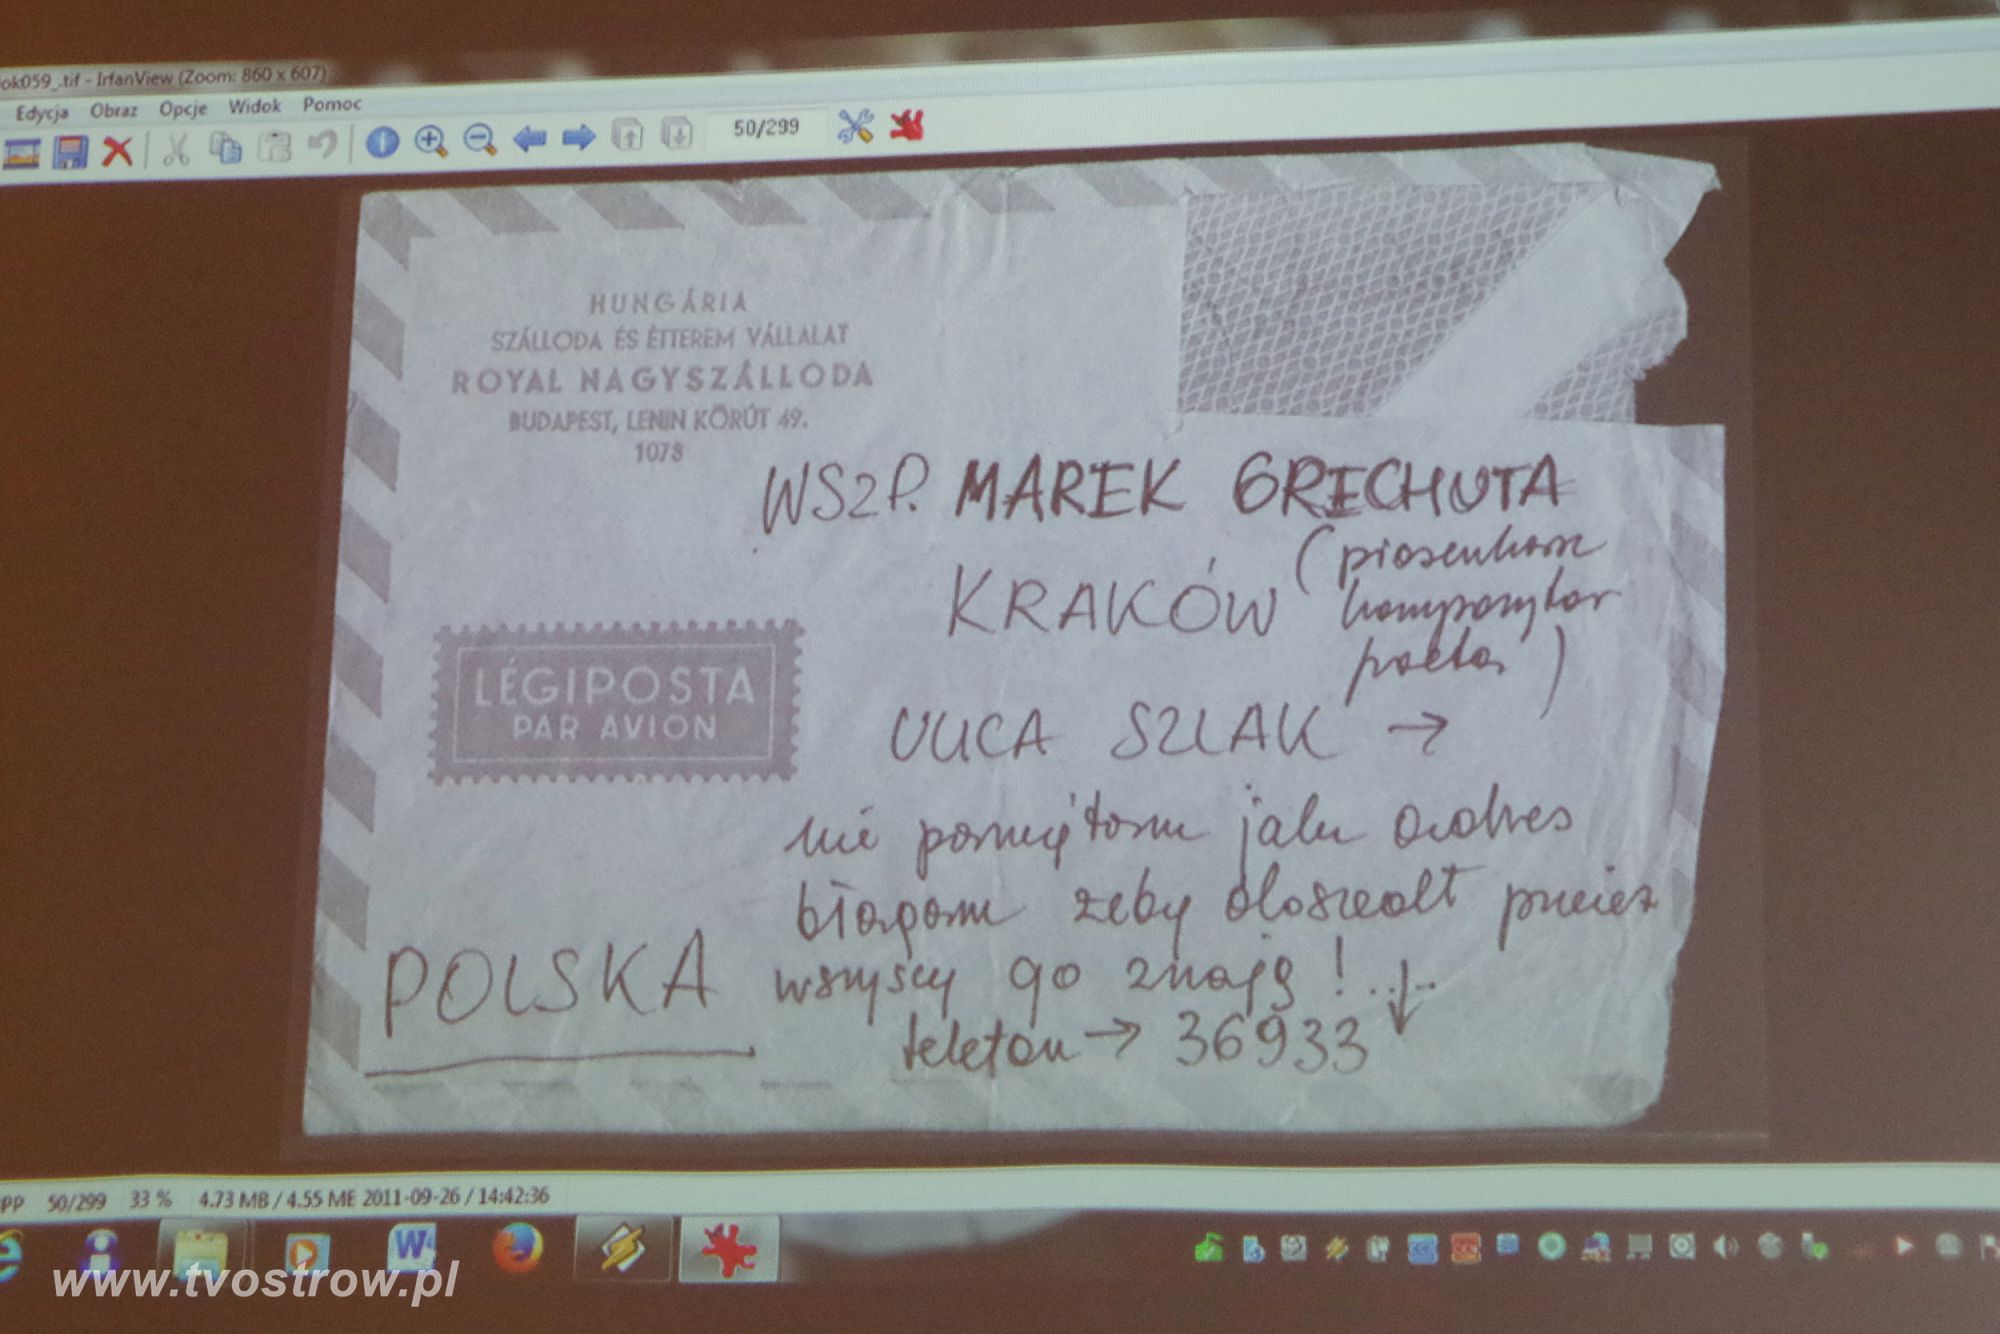 ok059_.tif - IrfanView (Zoom: 860 x 607)
Edycja Obraz Opcje Widok Pomoc
50/299
HUNGÁRIA
SZÁLLODA ÉS ÉTTEREM VÁLLALAT
ROYAL NAGYSZÁLLODA
BUDAPEST, LENIN KÖRÚT 49.
1073
WSZP. MAREK GRECHUTA
(piosenkarz
KRAKÓW
kompozytor
poeta)
LÉGIPOSTA
PAR AVION
ULICA SZLAK →
nie pamiętam jaki adres
błagam żeby doszedł przecież
wszyscy go znają!...
POLSKA
telefon → 36933
PP 50/299 33 % 4.73 MB / 4.55 ME 2011-09-26 / 14:42:36
www.tvostrow.pl